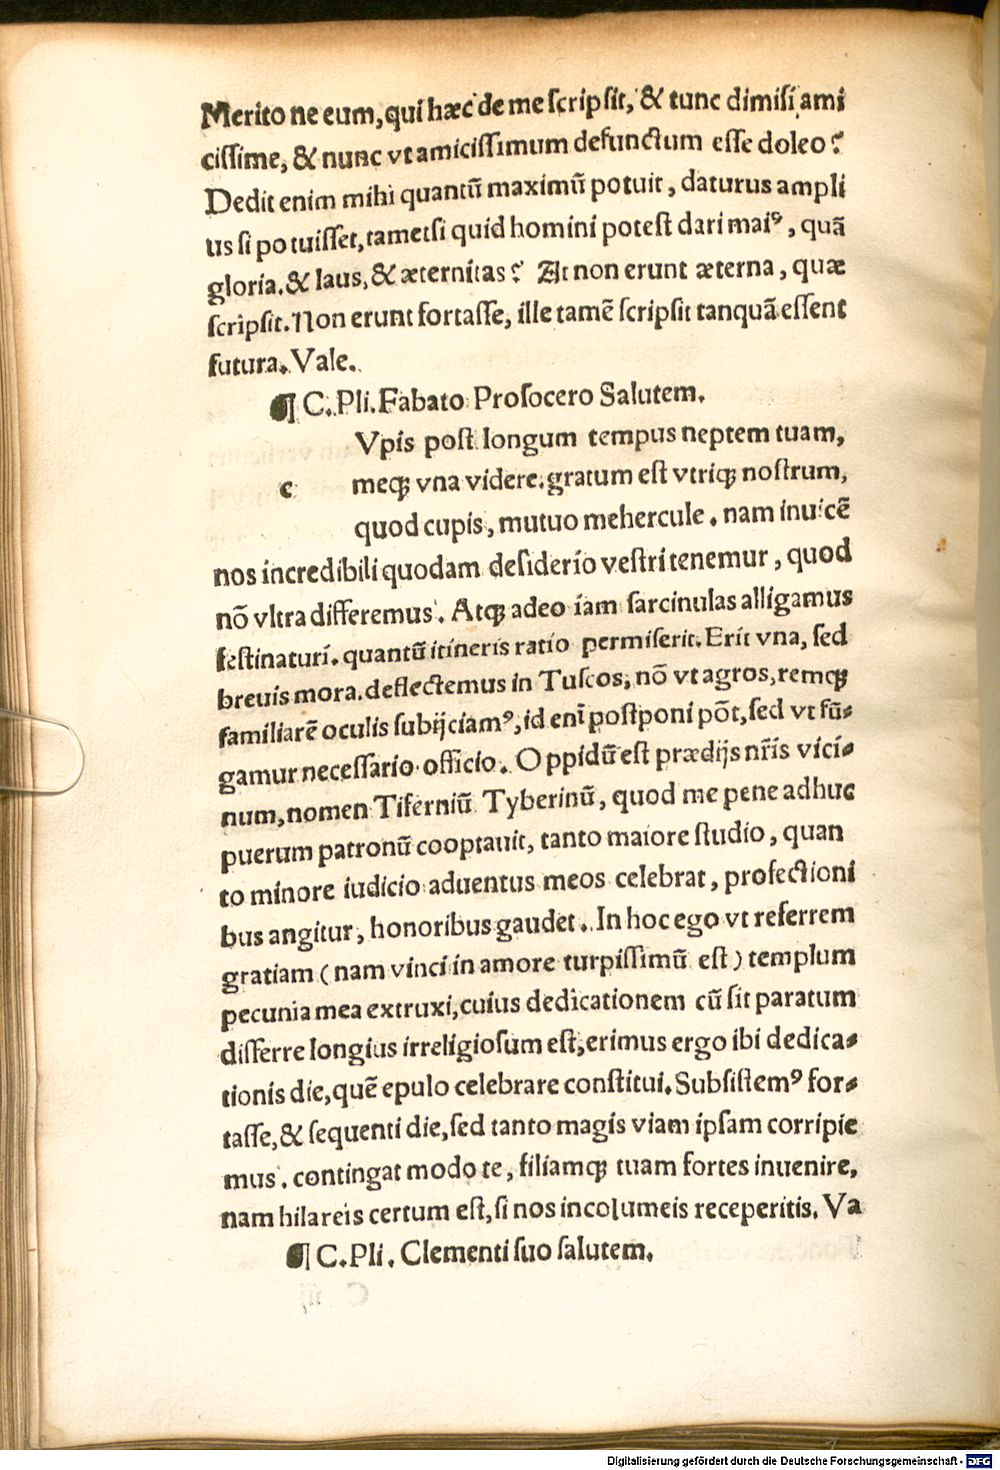 Merito ne eum, qui hæc de me ſcripſit, & tunc dimiſi ami
ciſſime, & nunc vt amiciſſimum defunctum eſſe doleo?
Dedit enim mihi quantū maximū potuit, daturus ampli
us ſi potuiſſet, tametſi quid homini poteſt dari maiꝰ, quā
gloria. & laus, & æternitas? At non erunt æterna, quæ
ſcripſit. Non erunt fortaſſe, ille tamē ſcripſit tanquā eſſent
futura. Vale.
¶ C. Pli. Fabato Proſocero Salutem.
Vpis poſt longum tempus neptem tuam,
c meqꝫ vna videre. gratum eſt vtriqꝫ noſtrum,
quod cupis, mutuo mehercule. nam inuicē
nos incredibili quodam deſiderio veſtri tenemur, quod
nō vltra differemus. Atqꝫ adeo iam ſarcinulas alligamus
feſtinaturi. quantū itineris ratio permiſerit. Erit vna, ſed
breuis mora. deflectemus in Tuſcos, nō vt agros, remqꝫ
familiarē oculis ſubijciamꝰ, id enī poſtponi pōt, ſed vt fū⸗
gamur neceſſario officio. Oppidū eſt prædijs nr̄is vici⸗
num, nomen Tiferniū Tyberinū, quod me pene adhuc
puerum patronū cooptauit, tanto maiore ſtudio, quan
to minore iudicio aduentus meos celebrat, profectioni
bus angitur, honoribus gaudet. In hoc ego vt referrem
gratiam (nam vinci in amore turpiſſimū eſt) templum
pecunia mea extruxi, cuius dedicationem cū ſit paratum
differre longius irreligioſum eſt, erimus ergo ibi dedica⸗
tionis die, quē epulo celebrare conſtitui. Subſiſtemꝰ for⸗
taſſe, & ſequenti die, ſed tanto magis viam ipſam corripie
mus. contingat modo te, filiamqꝫ tuam fortes inuenire,
nam hilareis certum eſt, ſi nos incolumeis receperitis. Va
¶ C. Pli. Clementi ſuo ſalutem.
Digitalisierung gefördert durch die Deutsche Forschungsgemeinschaft - DFG